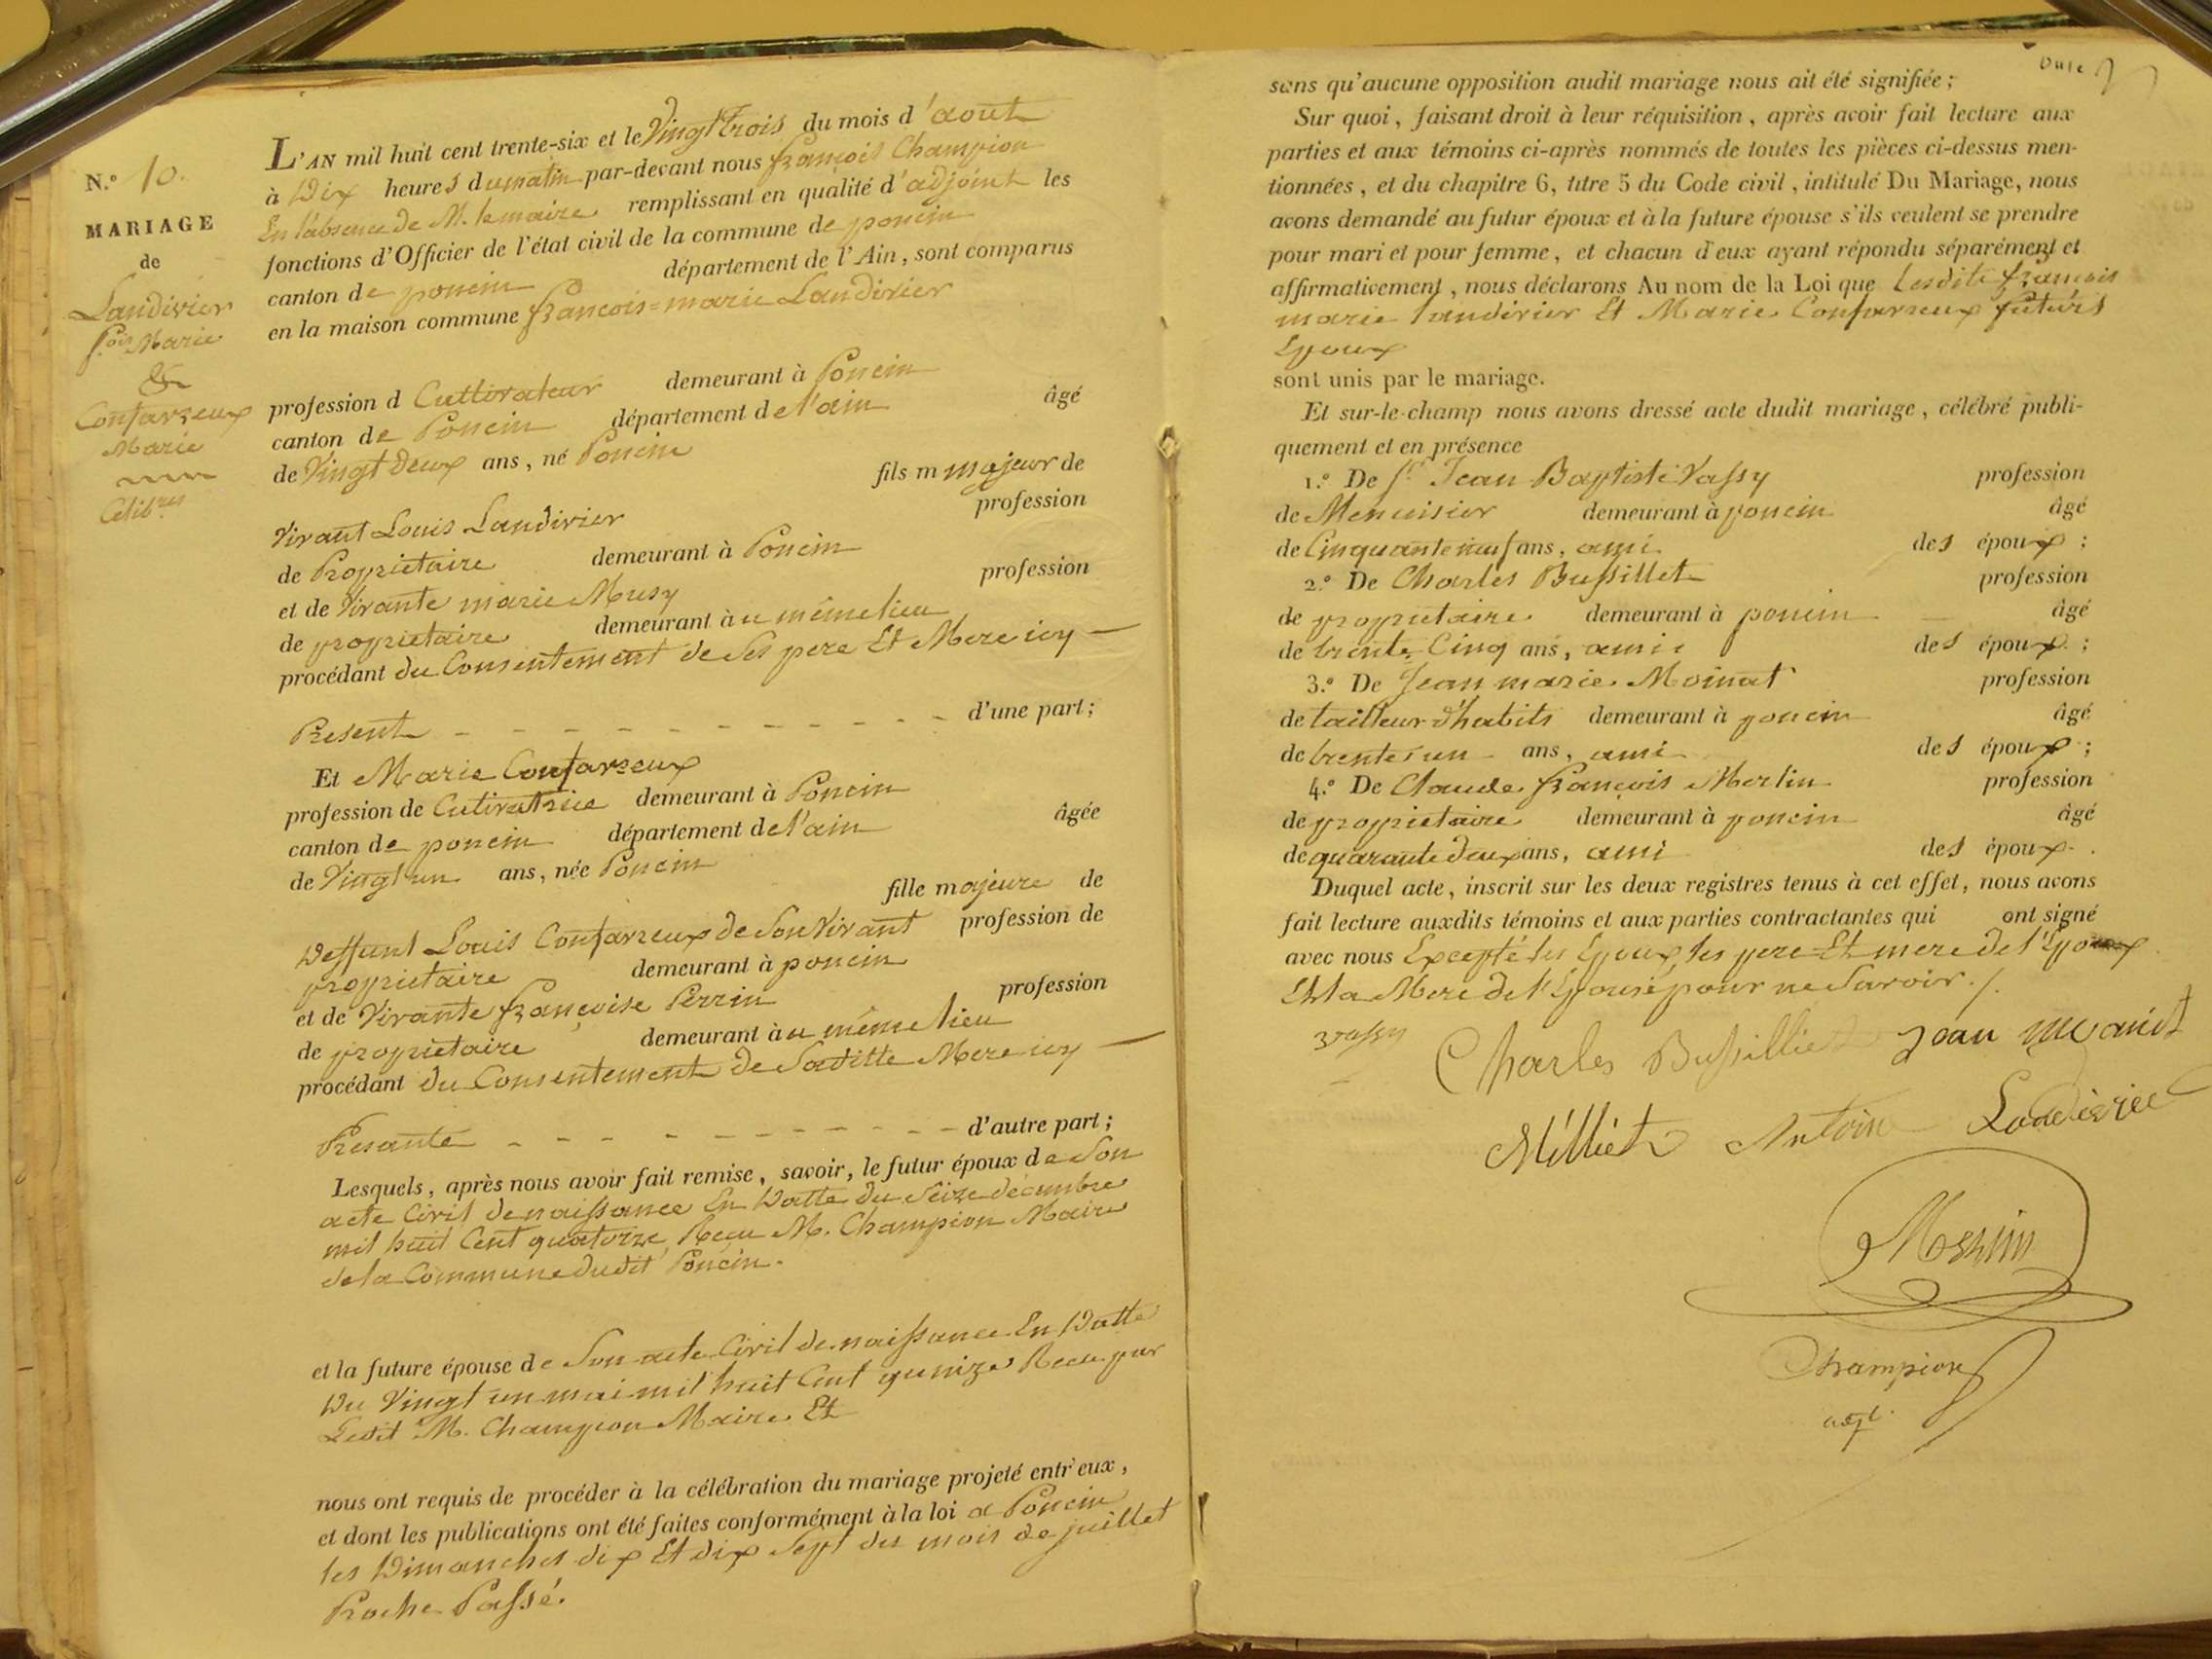 N.o 10.
MARIAGE
de
Landivier
f.ois Marie
&
Confavreux
Marie
Célib.res
L'AN mil huit cent trente-six et le Vingt trois du mois d'aout
à Dix heures du matin par-devant nous françois Champion
En l'absence de M. le maire remplissant en qualité d'adjoint les
fonctions d'Officier de l'état civil de la commune de poncin
canton de poncin département de l'Ain, sont comparus
en la maison commune françois=marie Landivier
profession d Cultivateur demeurant à Poncin
canton de Poncin département de l'ain âgé
de Vingt deux ans, né Poncin
fils m majeur de
Vivant Louis Landivier profession
de Propriétaire demeurant à Poncin
et de Vivante marie Musy profession
de proprietaire demeurant à u même lieu
procédant du Consentement de Ses pere Et Mere icy —
Présent - - - - - - - - - - - d'une part;
Et Marie Confavreux
profession de Cutivatrice demeurant à Poncin
canton de poncin département de l'ain âgée
de Vingt un ans, née Poncin
fille majeure de
Deffunt Louis Confavreux de Son Vivant profession de
proprietaire demeurant à poncin
et de Vivante françoise Perrin profession
de proprietaire demeurant à u même lieu
procédant du Consentement de Saditte Mere icy —
Présante - - - - - - - - - - - d'autre part;
Lesquels, après nous avoir fait remise, savoir, le futur époux de Son
acte Civil de naissance En Datte du Seize décembre
mil huit Cent quatorze, Recu M. Champion Maire
de la Commune dudit Poncin.
et la future épouse de Son acte Civil de naissance En Datte
Du Vingt un mai mil huit Cent quinze Recu par
Ledit M. Champion Maire Et
nous ont requis de procéder à la célébration du mariage projeté entr'eux,
et dont les publications ont été faites conformément à la loi a Poncin
les Dimanches dix Et dix Sept du mois de juillet
Proche Passé.
sans qu'aucune opposition audit mariage nous ait été signifiée;
Sur quoi, faisant droit à leur réquisition, après avoir fait lecture aux
parties et aux témoins ci-après nommés de toutes les pièces ci-dessus men-
tionnées, et du chapitre 6, titre 5 du Code civil, intitulé Du Mariage, nous
avons demandé au futur époux et à la future épouse s'ils veulent se prendre
pour mari et pour femme, et chacun d'eux ayant répondu séparément et
affirmativement, nous déclarons Au nom de la Loi que Lesdits françois
marie Landivier Et Marie Confavreux futurs
Epoux
sont unis par le mariage.
Et sur-le-champ nous avons dressé acte dudit mariage, célébré publi-
quement et en présence
1.o De S.r Jean Baptiste Vassy profession
de Menuisier demeurant à poncin âgé
de Cinquante neuf ans, ami des époux;
2.o De Charles Bussillet profession
de proprietaire demeurant à poncin âgé
de trente Cinq ans, ami des époux;
3.o De Jean marie Moinat profession
de tailleur d'habits demeurant à poncin âgé
de trente un ans, ami des époux;
4.o De Claude françois Merlin profession
de proprietaire demeurant à poncin âgé
de quarante deux ans, ami des époux.
Duquel acte, inscrit sur les deux registres tenus à cet effet, nous avons
fait lecture auxdits témoins et aux parties contractantes qui ont signé
avec nous Excepté les Epoux, les pere Et mere de l'Epoux
Et la Mere de l'Epouse pour ne Savoir./.
Vassy Charles Bussilliet Jean
Milliet Antoine Landivier
Champion
adjt.